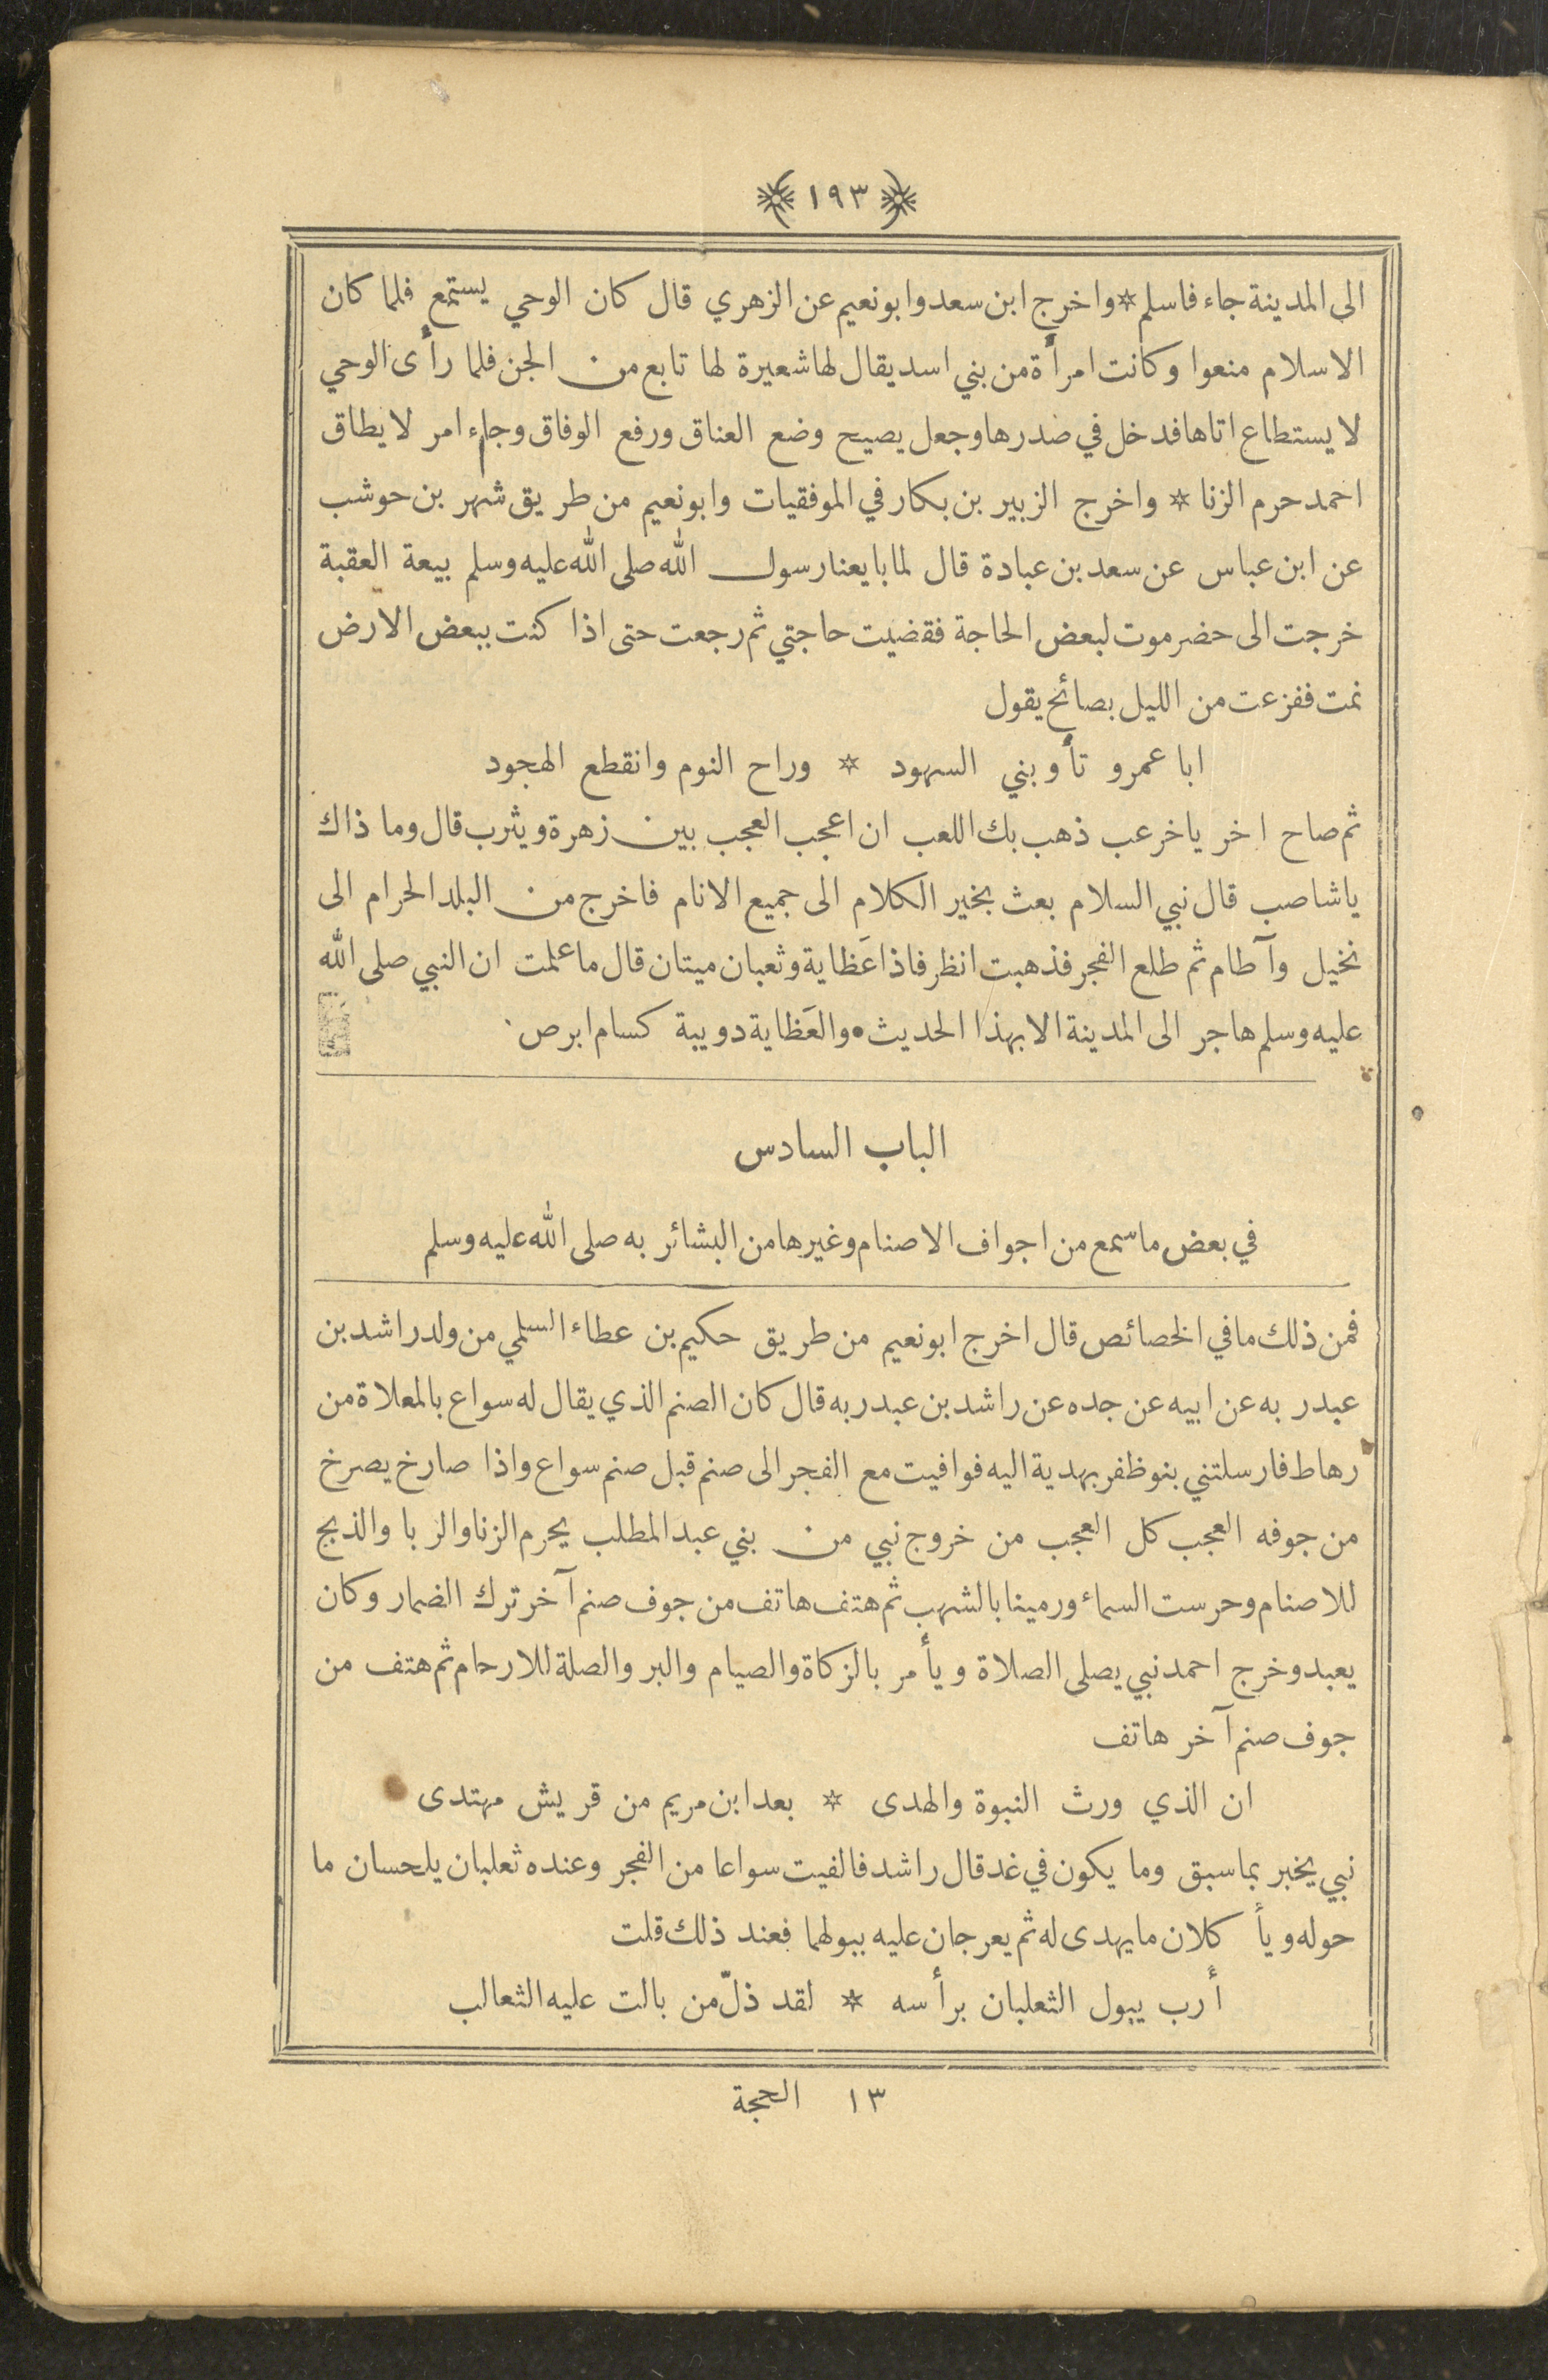 ﴿ ١٩٣ ﴾
الى المدينة جاء فاسلم * واخرج ابن سعد وابو نعيم عن الزهري قال كان الوحي يستمع فلما كان
الاسلام منعوا وكانت امرأة من بني اسد يقال لها شعيرة لها تابع من الجن فلما رأى الوحي
لا يستطاع اتاها فدخل في صدرها وجعل يصيح وضع العناق ورفع الوفاق وجاء امر لا يطاق
احمد حرم الزنا * واخرج الزبير بن بكار في الموفقيات وابو نعيم من طريق شهر بن حوشب
عن ابن عباس عن سعد بن عبادة قال لما بايعنا رسول الله صلى الله عليه وسلم بيعة العقبة
خرجت الى حضرموت لبعض الحاجة فقضيت حاجتي ثم رجعت حتى اذا كنت ببعض الارض
نمت ففزعت من الليل بصائح يقول
ابا عمرو تأوبني السهود * وراح النوم وانقطع الهجود
ثم صاح اخر يا خرعب ذهب بك اللعب ان اعجب العجب بين زهرة ويثرب قال وما ذاك
يا شاصب قال نبي السلام بعث بخير الكلام الى جميع الانام فاخرج من البلد الحرام الى
نخيل وآطام ثم طلع الفجر فذهبت انظر فاذا عَظاية وثعبان ميتان قال ما علمت ان النبي صلى الله
عليه وسلم هاجر الى المدينة الا بهذا الحديث • والعَظاية دويبة كسام ابرص
الباب السادس
في بعض ما سمع من اجواف الاصنام وغيرها من البشائر به صلى الله عليه وسلم
فمن ذلك ما في الخصائص قال اخرج ابو نعيم من طريق حكيم بن عطاء السلمي من ولد راشد بن
عبد ربه عن ابيه عن جده عن راشد بن عبد ربه قال كان الصنم الذي يقال له سواع بالمعلاة من
رهاط فارسلتني بنو ظفر بهدية اليه فوافيت مع الفجر الى صنم قبل صنم سواع واذا صارخ يصرخ
من جوفه العجب كل العجب من خروج نبي من بني عبد المطلب يحرم الزنا والربا والذبح
للاصنام وحرست السماء ورمينا بالشهب ثم هتف هاتف من جوف صنم آخر ترك الضمار وكان
يعبد وخرج احمد نبي يصلى الصلاة ويأمر بالزكاة والصيام والبر والصلة للارحام ثم هتف من
جوف صنم آخر هاتف
ان الذي ورث النبوة والهدى * بعد ابن مريم من قريش مهتدى
نبي يخبر بما سبق وما يكون في غد قال راشد فالفيت سواعا من الفجر وعنده ثعلبان يلحسان ما
حوله ويأكلان ما يهدى له ثم يعرجان عليه ببولهما فعند ذلك قلت
أرب يبول الثعلبان برأسه * لقد ذلّ من بالت عليه الثعالب
١٣ الحجة